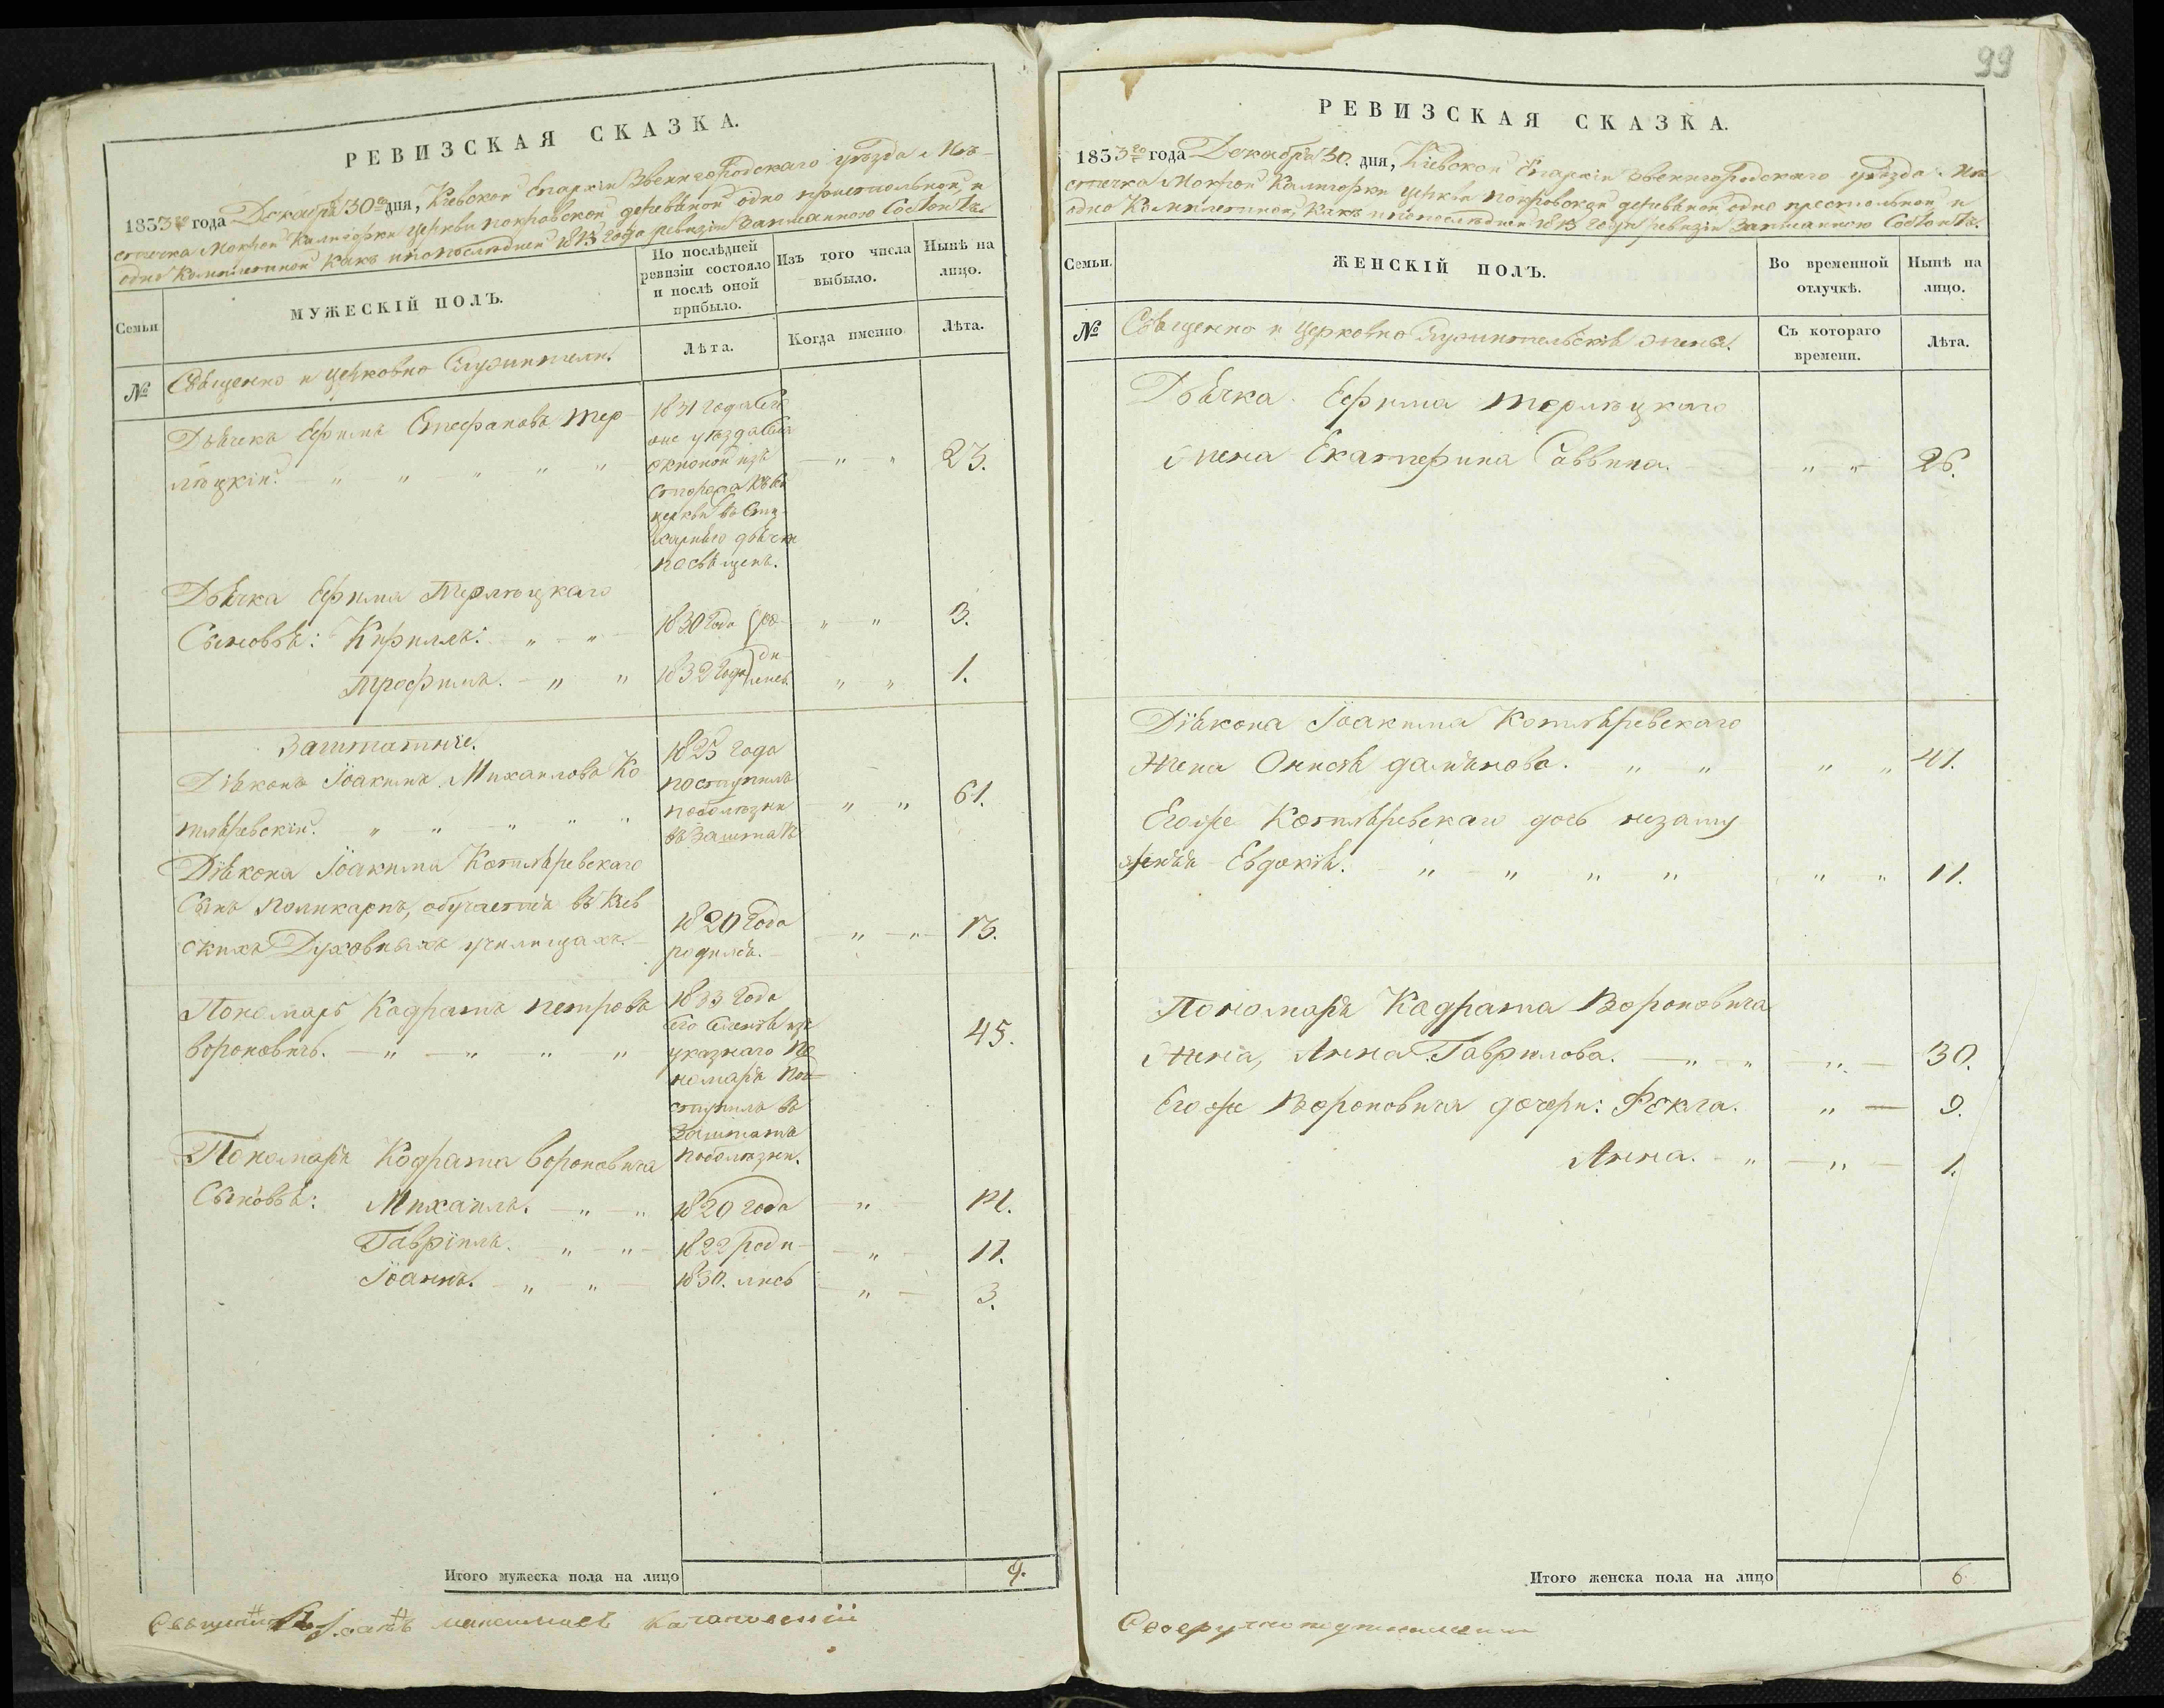 РЕВИЗСКАЯ СКАЗКА.
1833го года Декабря 30го дня, Кіевской Епархіи Звенигородскаго уѣзда Мѣ-
стечка Мокрой Калигорки церкви покровской деревяной одно престольной, и
одно Комплетной какъ и по последней 1815 года ревизіи Записанною Состоитъ.
Семьи
МУЖЕСКІЙ ПОЛЪ.
По послѣдней ревизіи состояло и послѣ оной прибыло.
Изъ того числа выбыло.
Нынѣ на лицо.
№
Священно и церковно Служители.
Лѣта.
Когда именно
Лѣта.
Дьячекъ Ефимъ Стефановъ Тер-
лѣцкій. 23.
1831 года
церкви въ
дьячка
посвященъ.
Дьячка Ефима Терлѣцкаго
Сыновья: Кирилъ. 1830 года ро- 3.
Трофимъ. 1832 года дились 1.
Заштатніе.
Діяконъ Іоакимъ Михаиловъ Ко-
тляревскій. 61.
1825 года
поступилъ
по болѣзни
въ Заштатъ
Діякона Іоакима Котляревскаго
Сынъ Поликарпъ, обучается въ Кіев
скихъ Духовныхъ училищахъ. 13.
1820 года
родился.
Пономарь Кадратъ петровъ
вороновичъ. 45.
1833 года
указнаго По
номаря По
ступилъ въ
Заштатъ
по болѣзни.
Пономаря Кодрата вороновича
Сыновья: Михаилъ. 1820 года
Гавріилъ. 1822 роди- 11.
Іоаннъ. 1830. лись 3.
Итого мужеска пола на лицо 9.
99
РЕВИЗСКАЯ СКАЗКА.
1833го года Декабря 30. дня, Кіевской Епархіи Звенигородскаго уѣзда Мѣ
стечка Мокрой Калигорки церкви покровской деревяной одно престольной и
одно Комплетной, какъ и по последней 1815 года ревизіи Записанною Состоитъ.
Семьи.
ЖЕНСКІЙ ПОЛЪ.
Во временной отлучкѣ.
Нынѣ на лицо.
№
Священно и церковно Служительскія жены.
Съ котораго времени.
Лѣта.
Дьячка Ефима Терлѣцкаго
жена Екатерина Саввина. 26.
Діякона Іоакима Котляревскаго
Жена Онисія дамянова. 41.
Егоже Котляревскаго дочь незаму
жняя Евдокія. 11.
Пономаря Кадрата Вороновича
Жена, Анна Гаврилова. 30.
Егоже Вороновича дочери: Фекла. 9.
Анна. 1.
Итого женска пола на лицо 6.